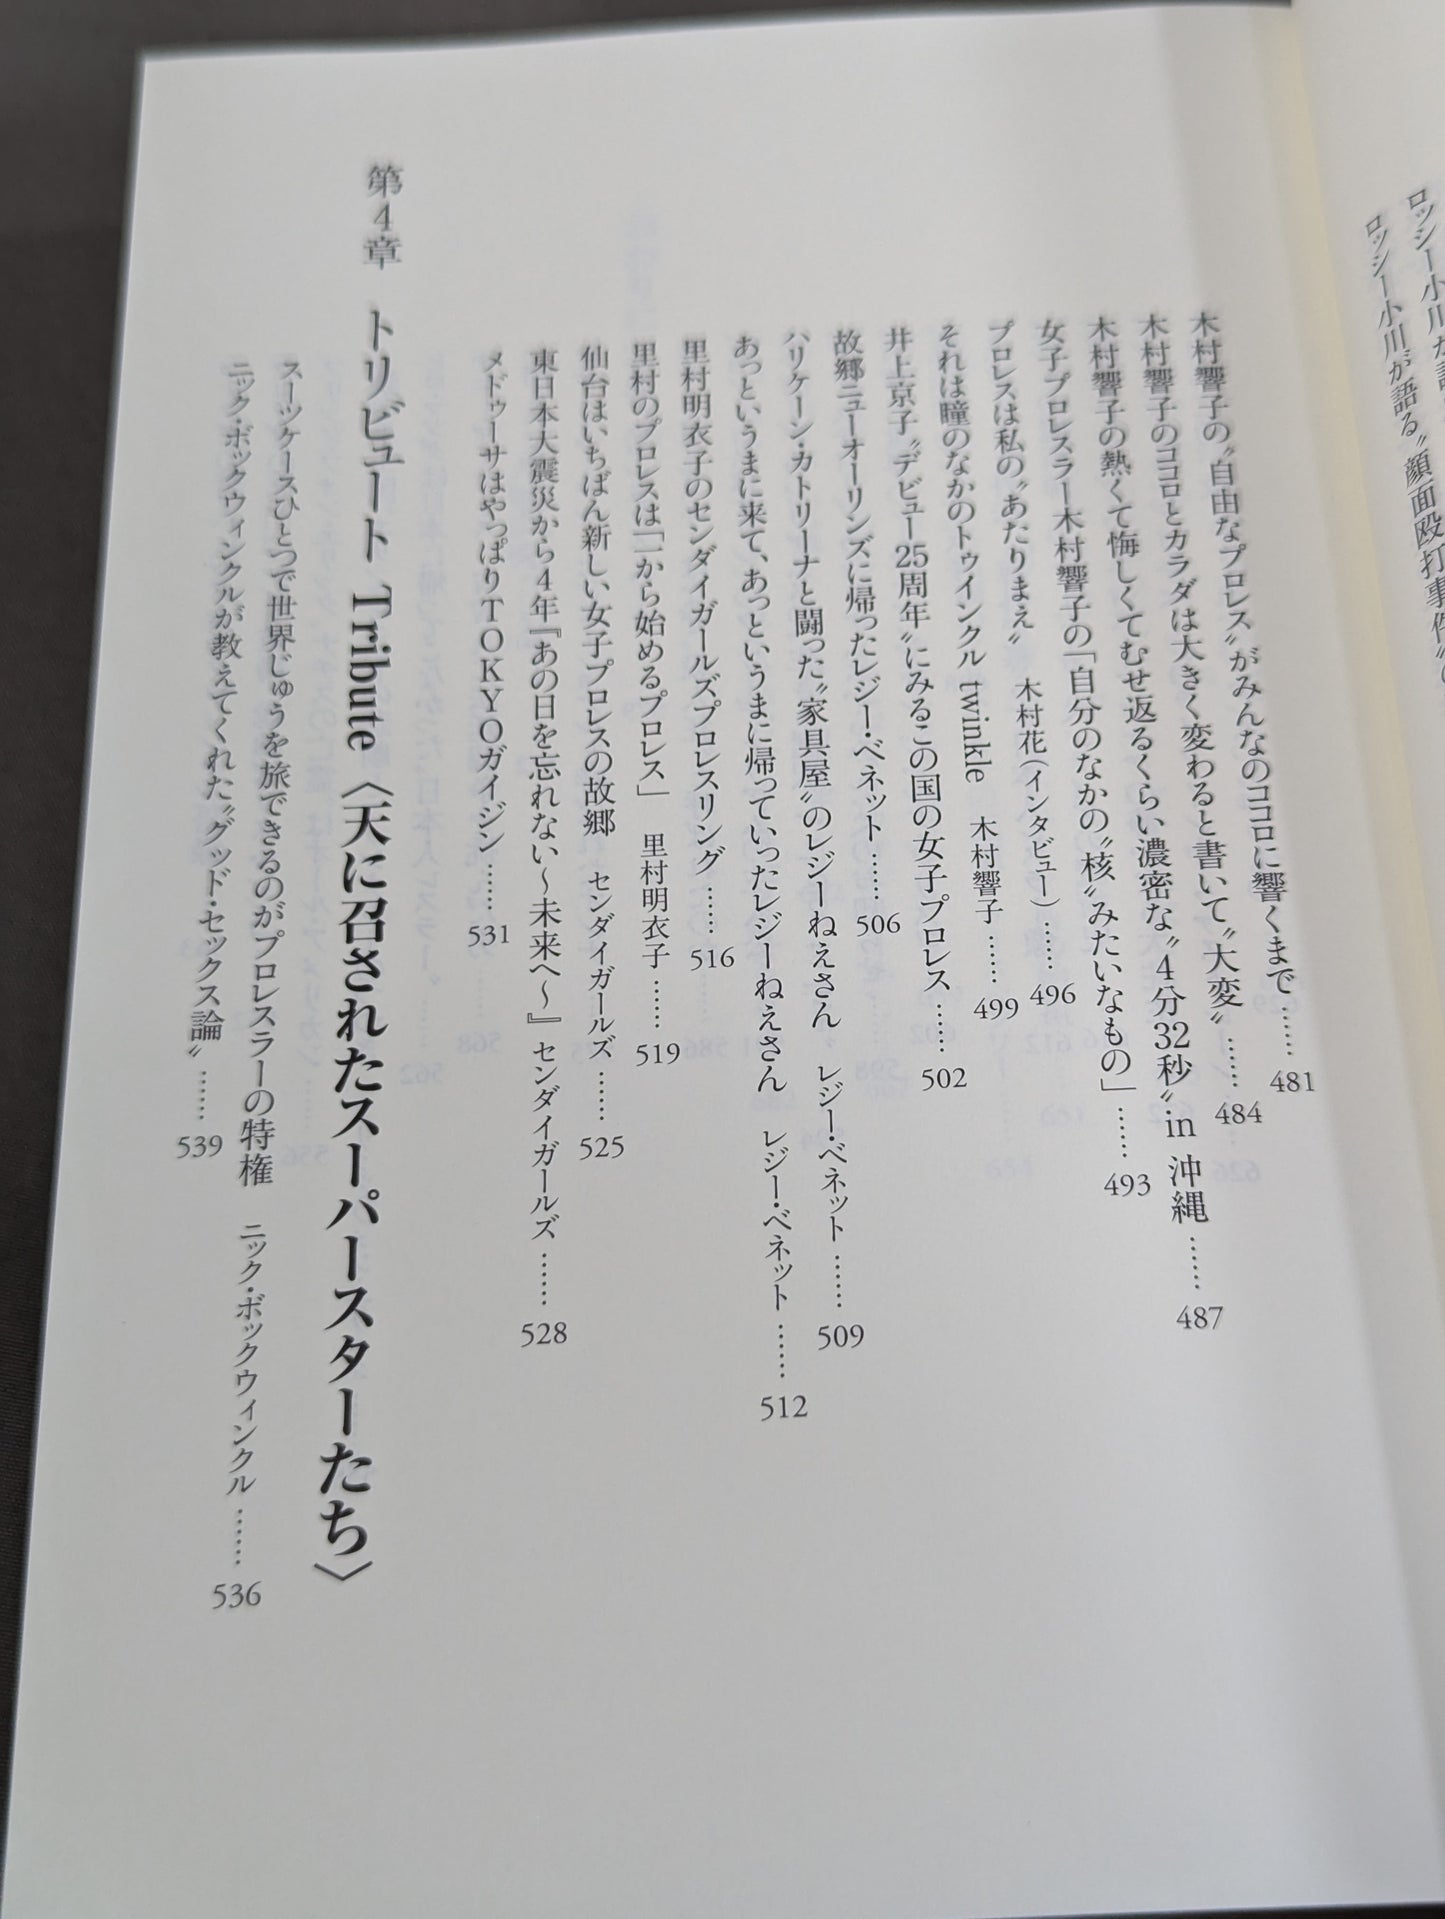 ロッシー小川が語る〝顔面殴打事件〟
木村響子の〝自由なプロレス〟がみんなのココロに響くまで……481
木村響子のココロとカラダは大きく変わると書いて〝大変〟……484
木村響子の熱くて悔しくてむせ返るくらい濃密な〝4分32秒〟in 沖縄……487
女子プロレスラー木村響子の「自分のなかの〝核〟みたいなもの」……493
プロレスは私の〝あたりまぇ〟　木村花（インタビュー）……496
それは瞳のなかのトゥインクル twinkle　木村響子……499
井上京子〝デビュー25周年〟にみるこの国の女子プロレス……502
故郷ニューオーリンズに帰ったレジー・ベネット……506
ハリケーン・カトリーナと闘った〝家具屋〟のレジーねえさん　レジー・ベネット……509
あっというまに来て、あっというまに帰っていったレジーねえさん　レジー・ベネット……512
里村明衣子のセンダイガールズプロレスリング……516
里村のプロレスは「一から始めるプロレス」　里村明衣子……519
仙台はいちばん新しい女子プロレスの故郷　センダイガールズ……525
東日本大震災から4年『あの日を忘れない～未来へ～』センダイガールズ……528
メドゥーサはやっぱりTOKYOガイジン……531
第4章　トリビュート Tribute〈天に召されたスーパースターたち〉
スーツケースひとつで世界じゅうを旅できるのがプロレスラーの特権　ニック・ボックウィンクル……536
ニック・ボックウィンクルが教えてくれた〝グッド・セックス論〟……539